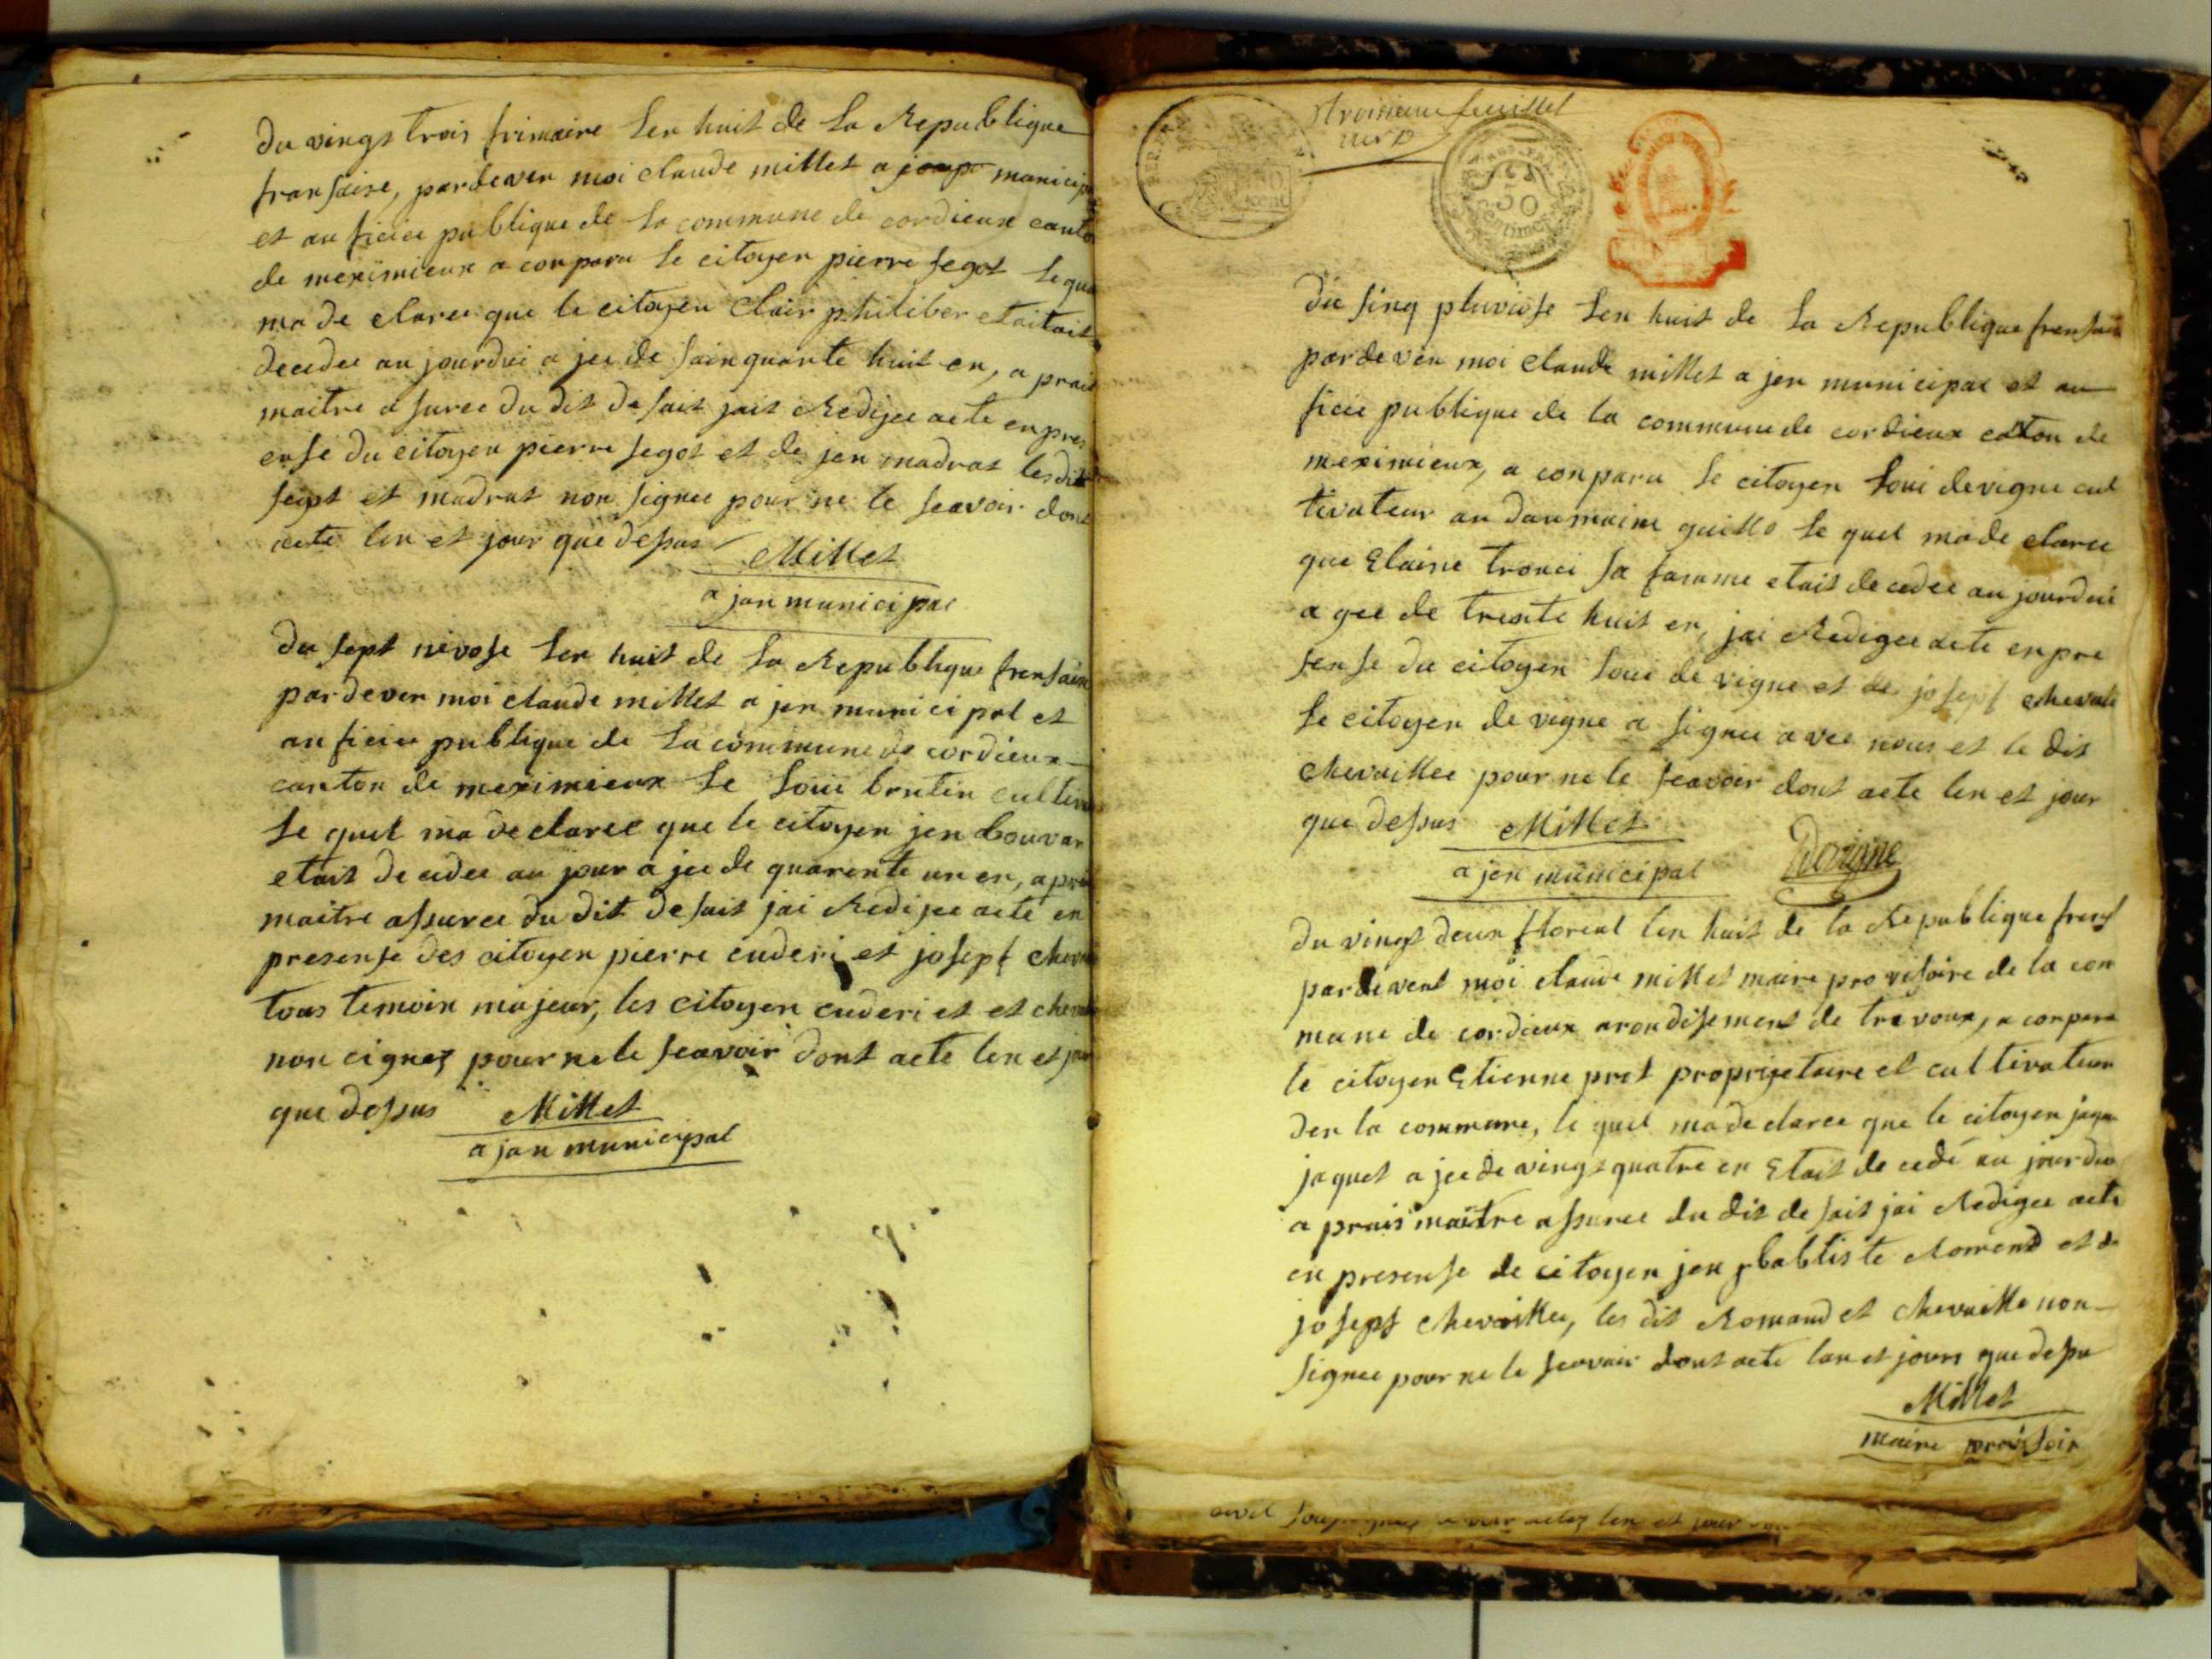 Du vingt trois frimaire Len huit de La Republique
fransaise, pardeven moi claude millet a jeup municip
et au ficiee publique de La commune de cordieux canto
de meximieux a conparu le citoyen pierre segot Le que
ma de claree que le citoyen Clair philiber etaitait
decedee au jourdui a jee de sainquante huit en, a prais
maitre asuree du dit desait jais Redijee acte enpres
ense du citoyen pierre segot et de jen madrat lesdit
segot et madrat non signee pour ne le seavoir dont
acte len et jour que desus Millet
a jan municipal
Du sept nivose Len huit de La Republique fransaise
pardeven moi claude millet a jen municipal et
auficiee publique de La commune de cordieux
canton de meximieux Le Loui brutin cultiva
Le quel ma declaree que le citoyen jen bouvar
etait decedee au jour a jee de quarente un en, apre
maitre assuree du dit desait jai Redijee acte en
presense des citoyen pierre cuderi et josept cheva
tous temoin majeur, les citoyen cuderi et et cheva
non cignez pour ne le seavoir dont acte len et jour
que dessus Millet
a jan municipal
troisieme feuillet
50
centimes
Du sinq pluviose Len huit de La Republique fransais
pardeven moi claude millet a jen municipal et au
ficiee publique de la commune de cordieux caton de
meximieux, a conparu Le citoyen Loui devigne cul
tivateur au daumaine guillo Le quel ma de claree
que Elaine tronci sa famme etait decedee au jourdui
a gee de trente huit en, jai Redigee acte enpre
sense du citoyen Loui de vigne et de josept chevali
Le citoyen de vigne a signee avec nous et le dit
chevaillee pour ne le seavoir dont acte len et jour
que dessus Millet
a jen municipal
Du vingt deux floreal len huit de la Republique frens
pardevent moi claude millet maire provisoire de la con
mune de cordieux arondisement de trevoux, a conparu
le citoyen Etienne prot proprijetaire et cultivateur
den la commune, le quel ma de claree que le citoyen jaqu
jaquet a jee de vingt quatre en Etait de cedé au jourdui
a prais maitre assuree du dit desait jai Redigee acte
en presense de citoyen jen babtiste Romend et de
josept chevaillee, les dit Romand et chevaille non
signee pour ne le seavoir dont acte lan et jours que desu
Millet
maire provisoir
len et jour